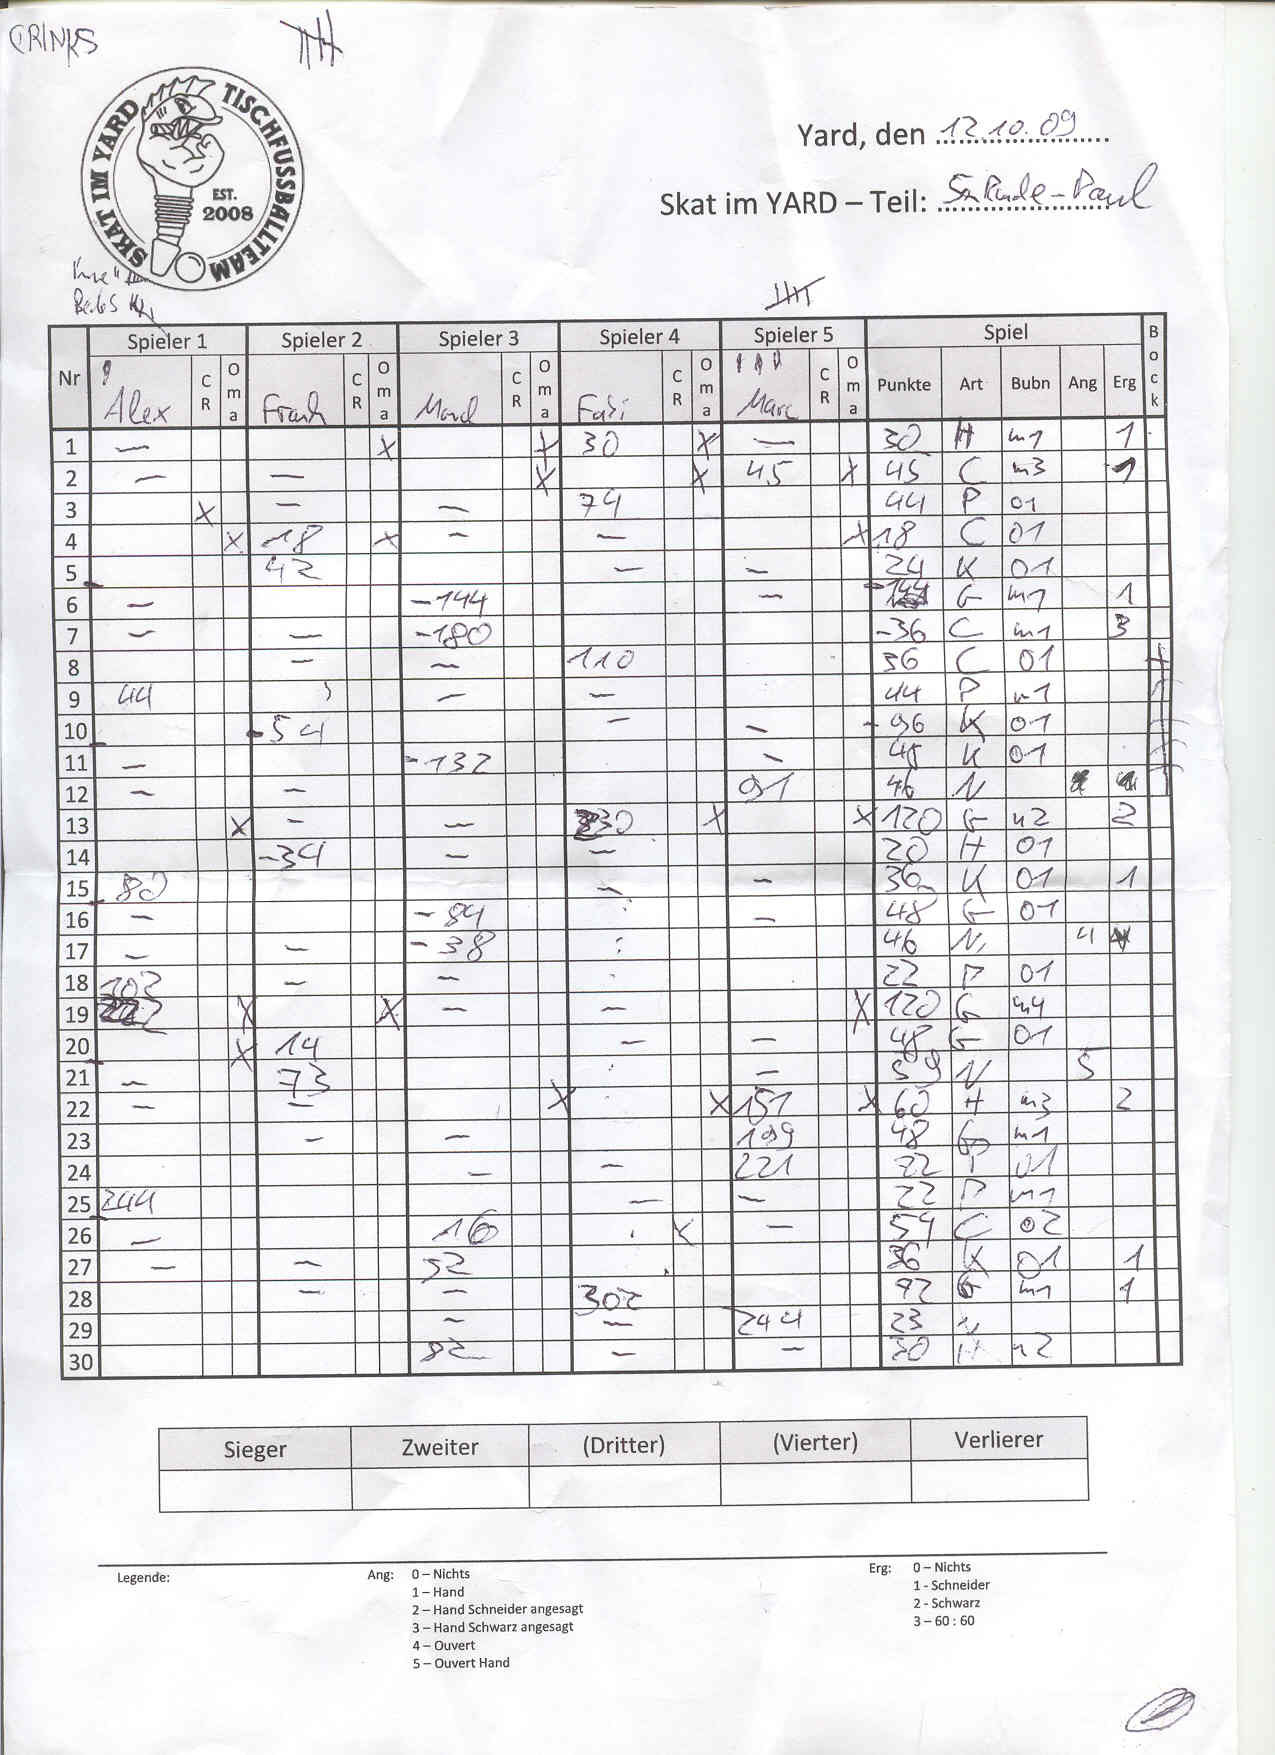 DRINKS
SKAT IM YARD TISCHFUSSBALLTEAM
EST.
2008
Yard, den 12.10.09
Skat im YARD – Teil:
Spieler 1 Spieler 2 Spieler 3 Spieler 4 Spieler 5 Spiel Bock
Nr Alex CR Oma Frank CR Oma CR Oma Fadi CR Oma Marc CR Oma Punkte Art Bubn Ang Erg
1 — X X 30 X — 30 H m1 1
2 — — X X 45 X 45 C m3 1
3 X — — 74 44 P 01
4 X 18 X — — X 18 C 01
5 42 — — 24 K 01
6 — -144 — -144 G m1 1
7 — — -180 -36 C m1 3
8 — — 110 36 C 01
9 44 — — 44 P m1
10 -54 — — -96 K 01
11 — -132 — 48 K 01
12 — — 91 46 N
13 X — — 230 X X 120 G m2 2
14 -34 — — 20 H 01
15 80 — — 36 K 01 1
16 — -84 — 48 G 01
17 — — -38 46 N 4
18 102 — — 22 P 01
19 222 X X — — X 120 G m4
20 X 14 — — 48 G 01
21 — 73 — 59 N 5
22 — — X X 151 X 60 H m3 2
23 — — 199 48 G m1
24 — — 221 22 P 01
25 244 — — 22 P m1
26 — 16 X — 54 C 02
27 — — 52 36 K 01 1
28 — — 302 72 G m1 1
29 — — 244 23 N
30 82 — — 30 H m2
Sieger Zweiter (Dritter) (Vierter) Verlierer
Legende:
Ang: 0 – Nichts
1 – Hand
2 – Hand Schneider angesagt
3 – Hand Schwarz angesagt
4 – Ouvert
5 – Ouvert Hand
Erg: 0 – Nichts
1 - Schneider
2 - Schwarz
3 – 60 : 60